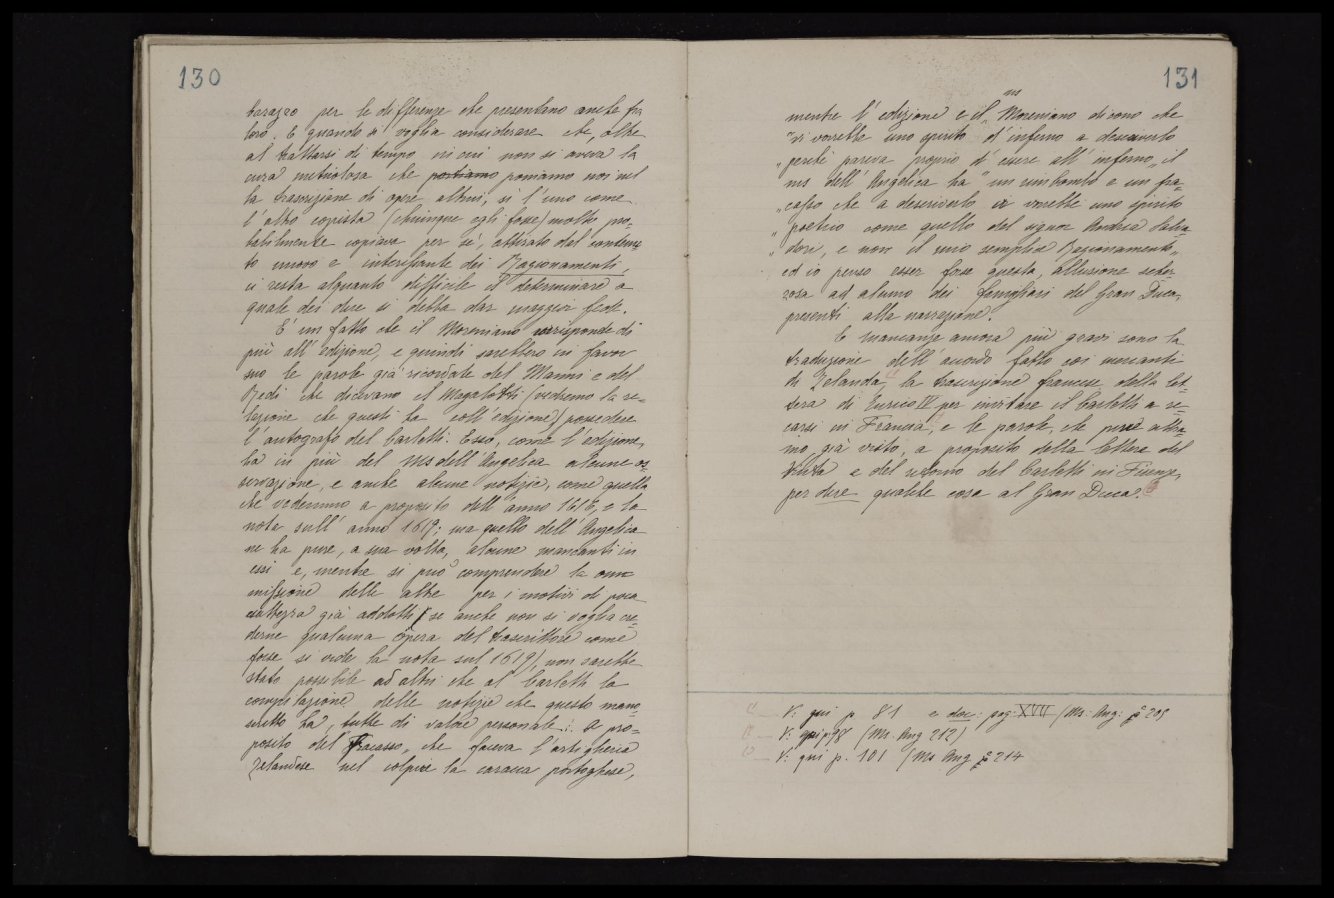 130
barazzo per le differenze che presentano anche fra
loro. E quando si voglia considerare che, oltre
al trattarsi di tempo in cui non si aveva la
cura meticolosa che portiamo poniamo noi nel
la trascrizione di opere altrui, sì l'uno come
l'altro copista (chiunque egli fosse) molto pro=
babilmente copiava per sé, attirato dal contenu
to nuovo e interessante dei Ragionamenti,
ci resta alquanto difficile il determinare a
quale dei due si debba dar maggior fede.
E' un fatto che il Moreniano corrisponde di
più all'edizione, e quindi sarebbero in favor
suo le parole già ricordate del Manni e del
Redi che dicevano il Magalotti (vedremo la re=
lazione che questi ha coll'edizione) possedere
l'autografo del Carletti: Esso, come l'edizione,
ha in più del ms dell'Angelica alcune os=
servazione, e anche alcune notizie, come quella
che vedemmo a proposito dell'anno 1616, e la
nota sull'anno 1619; ma quello dell'Angelica
ne ha pure, a sua volta, alcune mancanti in
essi e, mentre si può comprendere la om
missione delle altre per i motivi di poca
esattezza già addotti (se anche non si voglia cre=
derne qualcuna opera del trascrittore come
forse si vide la nota sul 1619), non sarebbe
stato possibile ad altri che al Carletti la
compilazione delle notizie che questo mano=
scritto ha, tutte di valore personale: A pro=
posito del "Fracasso" che faceva l'artiglieria
zelandese nel colpire la caracca portoghese,
131
mentre l'edizione e il ms Moreniano dicono che
"vi vorrebbe uno spirito d'inferno a descriverlo
"perché pareva proprio d'essere all'inferno" il
ms dell'Angelica ha "un rimbombo e un fra=
"casso che a descriverlo ci vorrebbe uno spirito
"poetico come quello del signor Andrea Salva
"dori, e non il mio semplice Ragionamento"
ed io penso esser forse questa, allusione scher
zosa ad alcuno dei famigliari del Gran Duca,
presenti alla narrazione.
E mancanze ancora più gravi sono la
traduzione dell'accordo fatto coi mercanti
di Zelanda, la trascrizione francese della let=
tera di Enrico IV per invitare il Carletti a re=
carsi in Francia, e le parole, che pure abbia=
mo già visto, a proposito della lettera del
e del ritorno del Carletti in Firenze,
per dire qualche cosa al Gran Duca.
V: qui p 81 e doc: pag: XVII (Ms: Ang: p° 205
V: qui p 98 (Ms. Ang 212)
V: qui p. 101 (Ms Ang p° 214